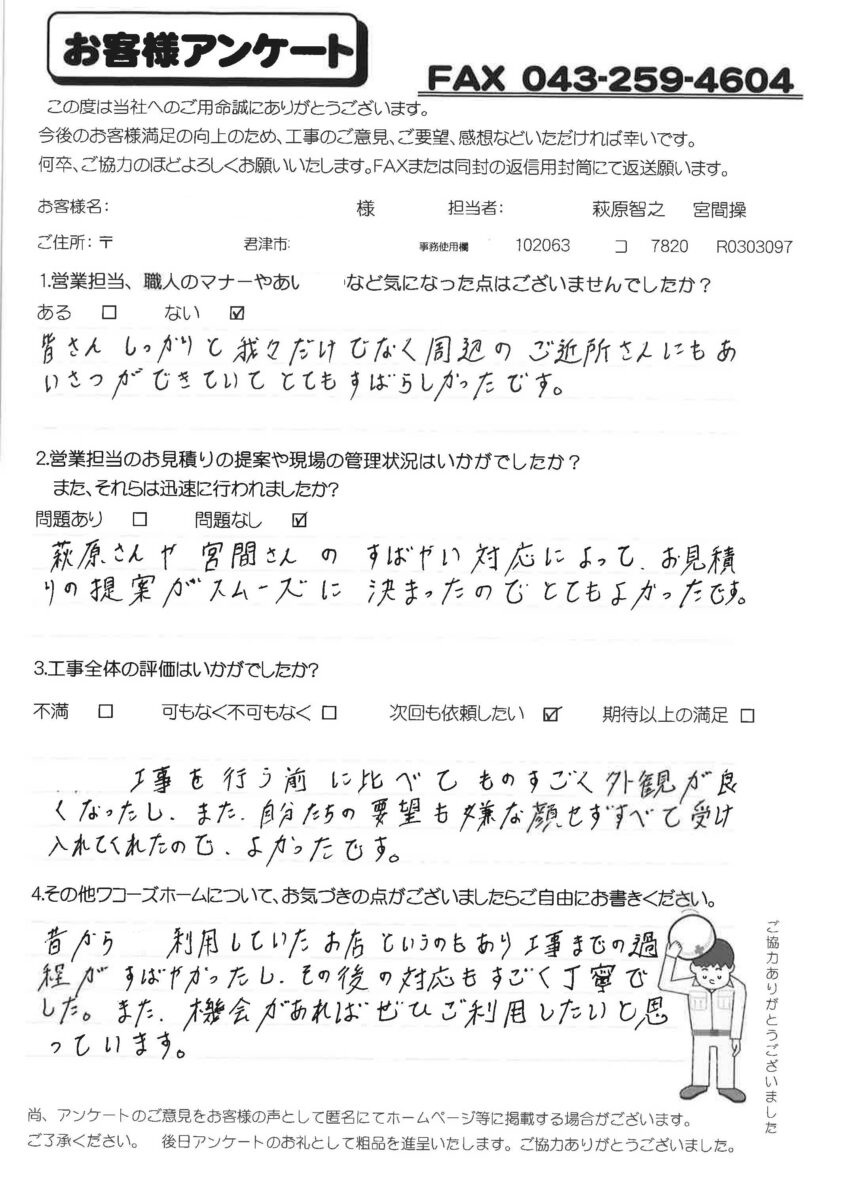 お客様アンケート
FAX 043-259-4604
この度は当社へのご用命誠にありがとうございます。
今後のお客様満足の向上のため、工事のご意見、ご要望、感想などいただければ幸いです。
何卒、ご協力のほどよろしくお願いいたします。FAXまたは同封の返信用封筒にて返送願います。
お客様名: 様 担当者: 萩原智之 宮間操
ご住所: 〒 君津市 事務使用欄 102063 コ 7820 R0303097
1.営業担当、職人のマナーやあい など気になった点はございませんでしたか?
ある □ ない ☑
皆さん しっかりと 我々だけでなく周辺の ご近所さんにもあ
いさつができていて とてもすばらしかったです。
2.営業担当のお見積りの提案や現場の管理状況はいかがでしたか?
また、それらは迅速に行われましたか?
問題あり □ 問題なし ☑
萩原さんや 宮間さんの すばやい対応によって、お見積
りの提案がスムーズに 決まったのでとてもよかったです。
3.工事全体の評価はいかがでしたか?
不満 □ 可もなく不可もなく □ 次回も依頼したい ☑ 期待以上の満足 □
工事を行う前に比べて ものすごく外観が良
くなったし、また、自分たちの要望も嫌な顔せずすべて受け
入れてくれたので、よかったです。
4.その他ワコーズホームについて、お気づきの点がございましたらご自由にお書きください。
昔から 利用していたお店というのもあり工事までの過
程がすばやかったし、その後の対応もすごく丁寧で
した。また、機会があればぜひご利用したいと思
っています。
ご協力ありがとうございました
尚、アンケートのご意見をお客様の声として匿名にてホームページ等に掲載する場合がございます。
ご了承ください。 後日アンケートのお礼として粗品を進呈いたします。ご協力ありがとうございました。